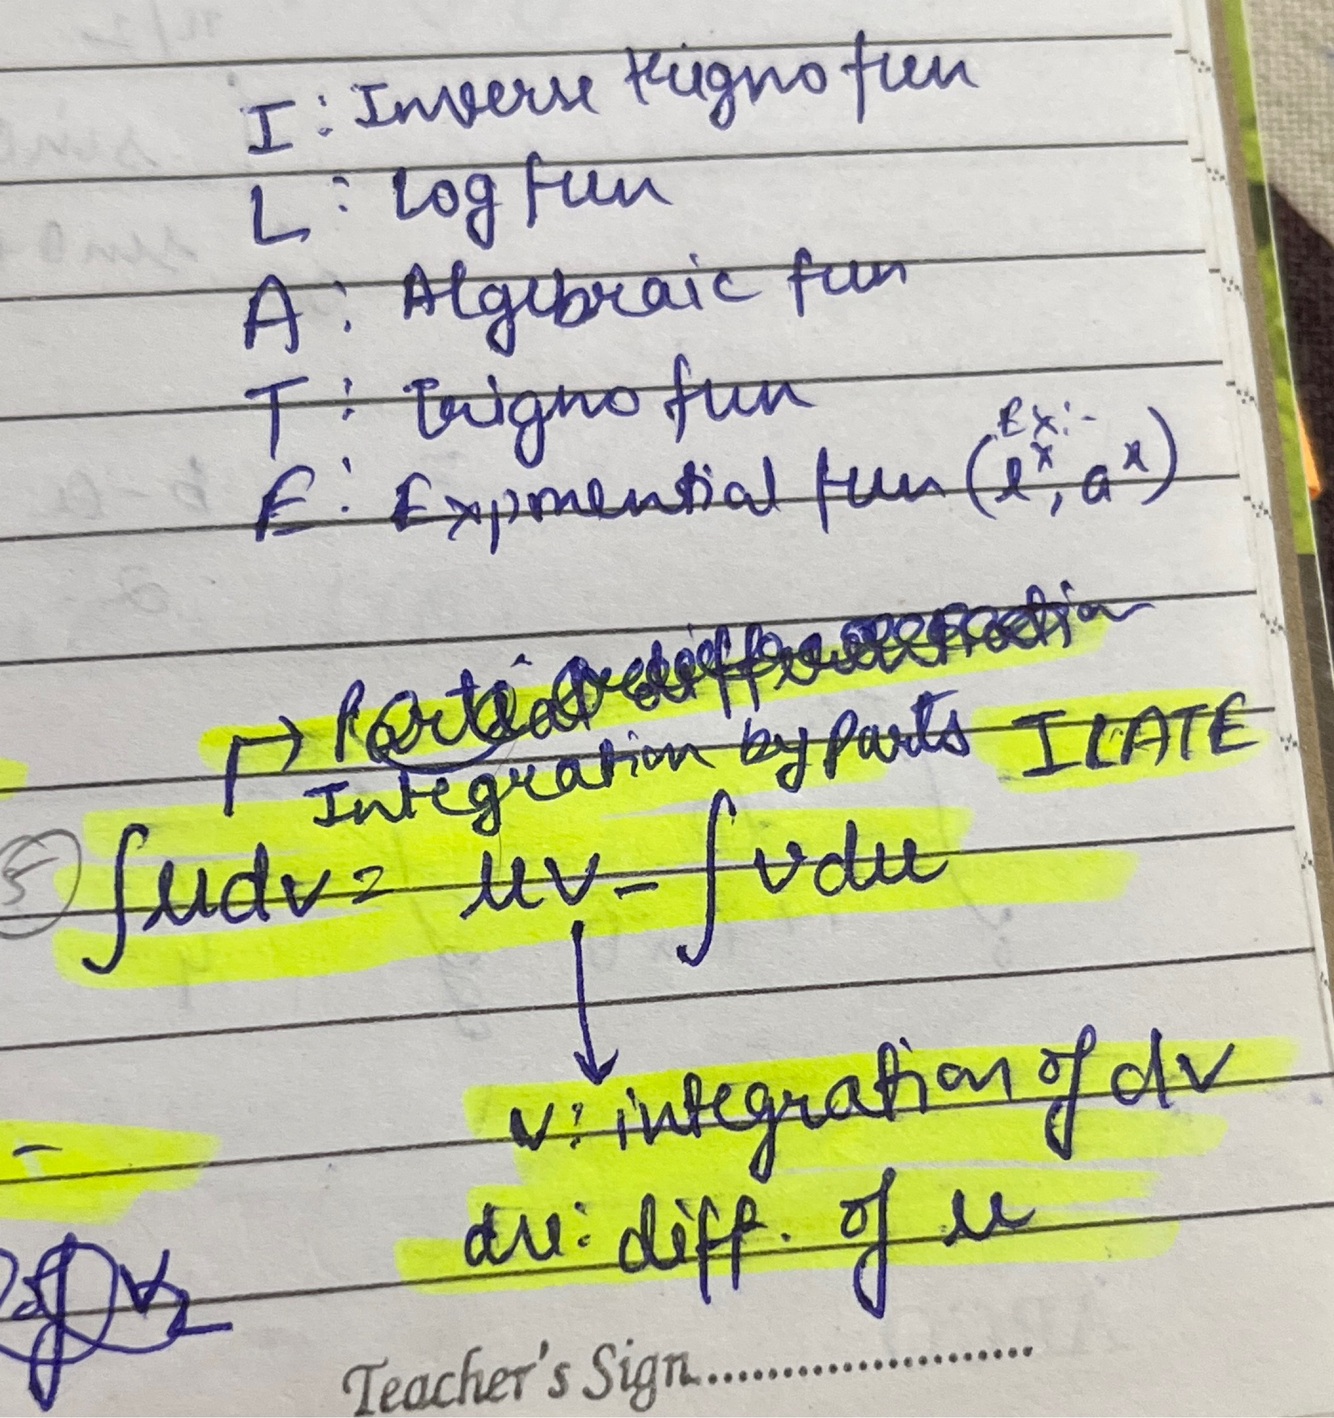 I : Inverse trigno fun
L : Log fun
A : Algebraic fun
T : Trigno fun
E : Exponential fun (Ex:- e^x, a^x)
Integration by parts ILATE
5 ∫udv = uv - ∫vdu
v: integration of dv
-
du: diff. of u
Teacher's Sign..............................